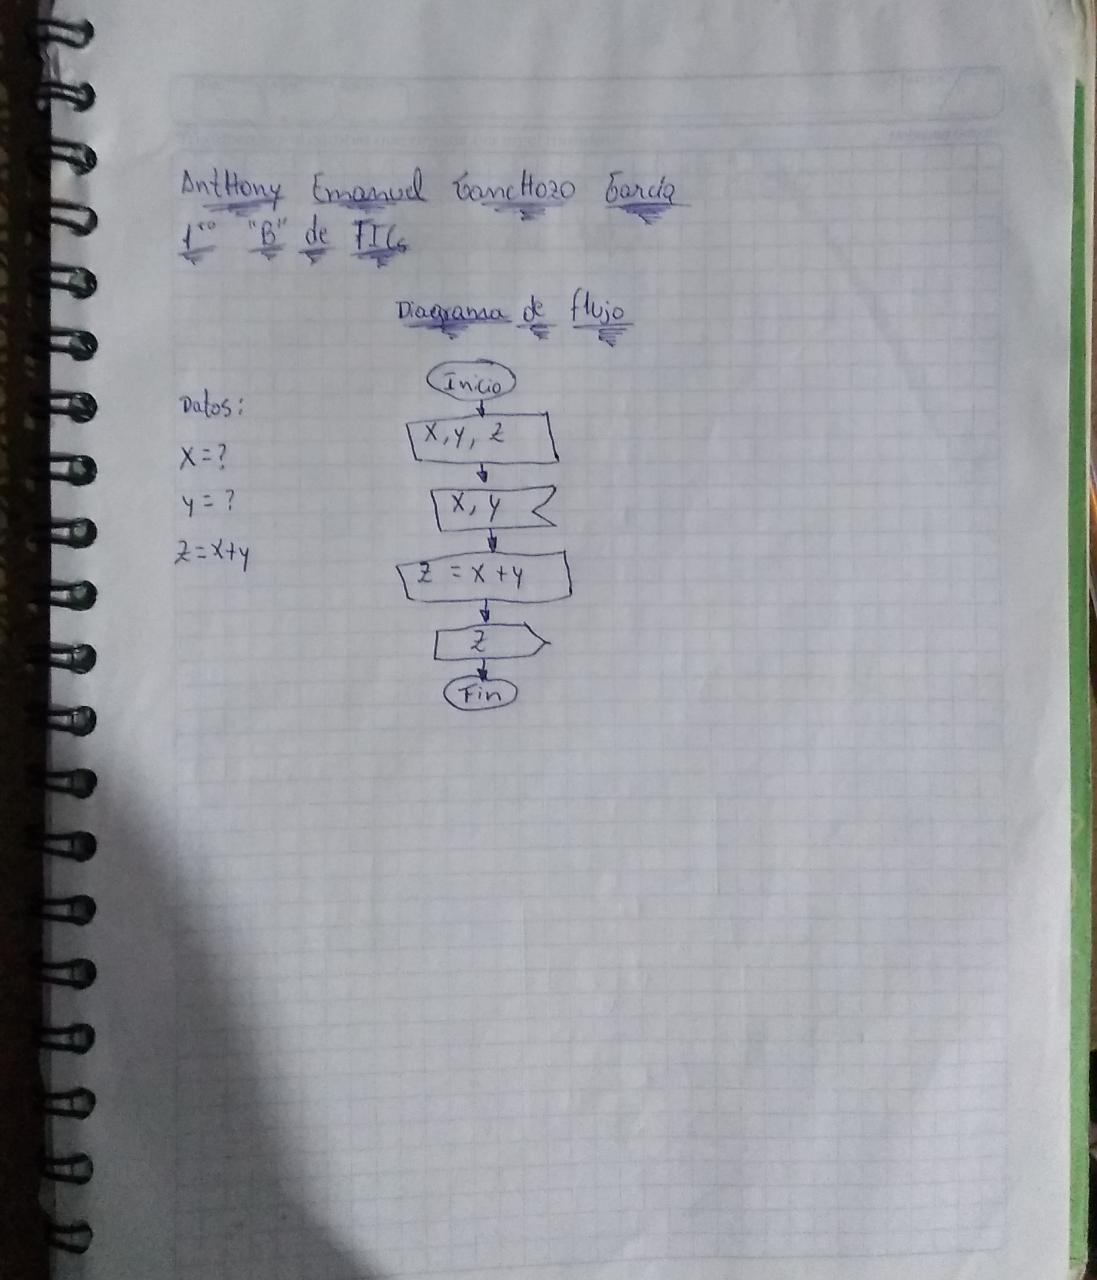 AntHony Emanuel GancHozo García
1ro "B" de TICs
Diagrama de flujo
Datos:
X=?
y=?
Z=X+y
Inicio
X, y, Z
X, y
Z = X + y
Z
Fin